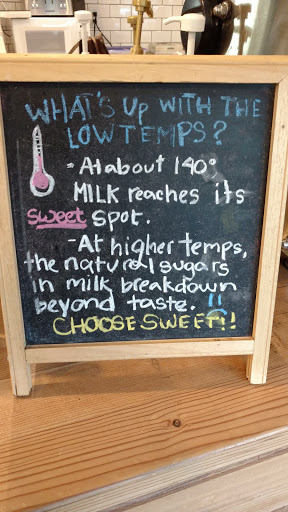 WHAT'S UP WITH THE
LOW TEMPS?
- At about 140°
MILK reaches its
sweet spot.
- At higher temps,
the natural sugars
in milk breakdown
beyond taste.
CHOOSE SWEET!!